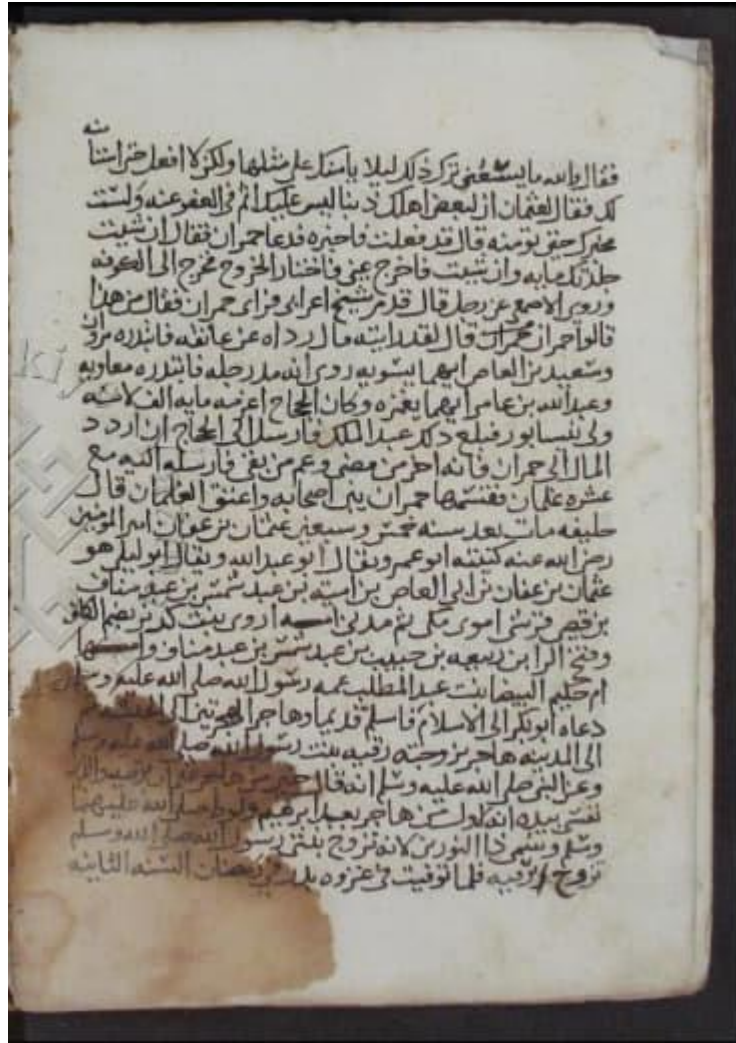 فقال والله ما يسعني ترك ذلك ليلا يامنك على مثلها ولكن لا افعل خيرا
لك فقال لعثمان ان لبعض اهلك دينا ليس عليك اثم في العفو عنه ولست
مخبرك حتى تومنه قال قد فعلت فاخبره فدعا حمران فقال ان شيت
جلدتك مايه وان شيت فاخرج عني فاختار الخروج فخرج الى الكوفه
وروى الاصمعي عن رجل قال قدم شيخ اعرابي فراى حمران فقال من هذا
قالوا حمران قال لقد رايته مال رداه عن عاتقه فابتدره مروان
وسعيد بن العاص ايهما يسويه روى انه مد رجله فابتدره معاويه
وعبد الله بن عامر ايهما يغمزه وكان الحجاج اغرمه مايه الف لانه
ولي نيسابور فبلغ ذلك عبد الملك فارسل الى الحجاج ان اردد
المال الى حمران فانه اخو من مضى وعم من بقي فارسله اليه مع
عشره غلمان فقسمها حمران بين اصحابه واعتق الغلمان قال
خليفه مات بعد سنه خمس وسبعين عثمان بن عفان امير المومنين
رضي الله عنه كنيته ابو عمرو ويقال ابو عبد الله ويقال ابو ليلى هو
عثمان بن عفان بن ابي العاص بن اميه بن عبد شمس بن عبد مناف
بن قصي قرشي اموي مكي ثم مدني امه اروى بنت كريز بضم الكاف
وفتح الرا بن ربيعه بن حبيب بن عبد شمس بن عبد مناف وامها
ام حكيم البيضا بنت عبد المطلب عمه رسول الله صلى الله عليه وسلم
دعاه ابو بكر الى الاسلام فاسلم قديما وهاجر الهجرتين الى الحبشه ثم
الى المدينه هاجر بزوجته رقيه بنت رسول الله صلى الله عليه وسلم
وعن النبي صلى الله عليه وسلم انه قال حين هاجر عثمان برقيه والذي
نفسي بيده انه لاول من هاجر بعد ابرهيم ولوط صلى الله عليهما
وسلم ويسمى ذا النورين لانه تزوج بنتي رسول الله صلى الله وسلم
تزوج رقيه فلما توفيت في غزوه بدر في رمضان السنه الثانيه